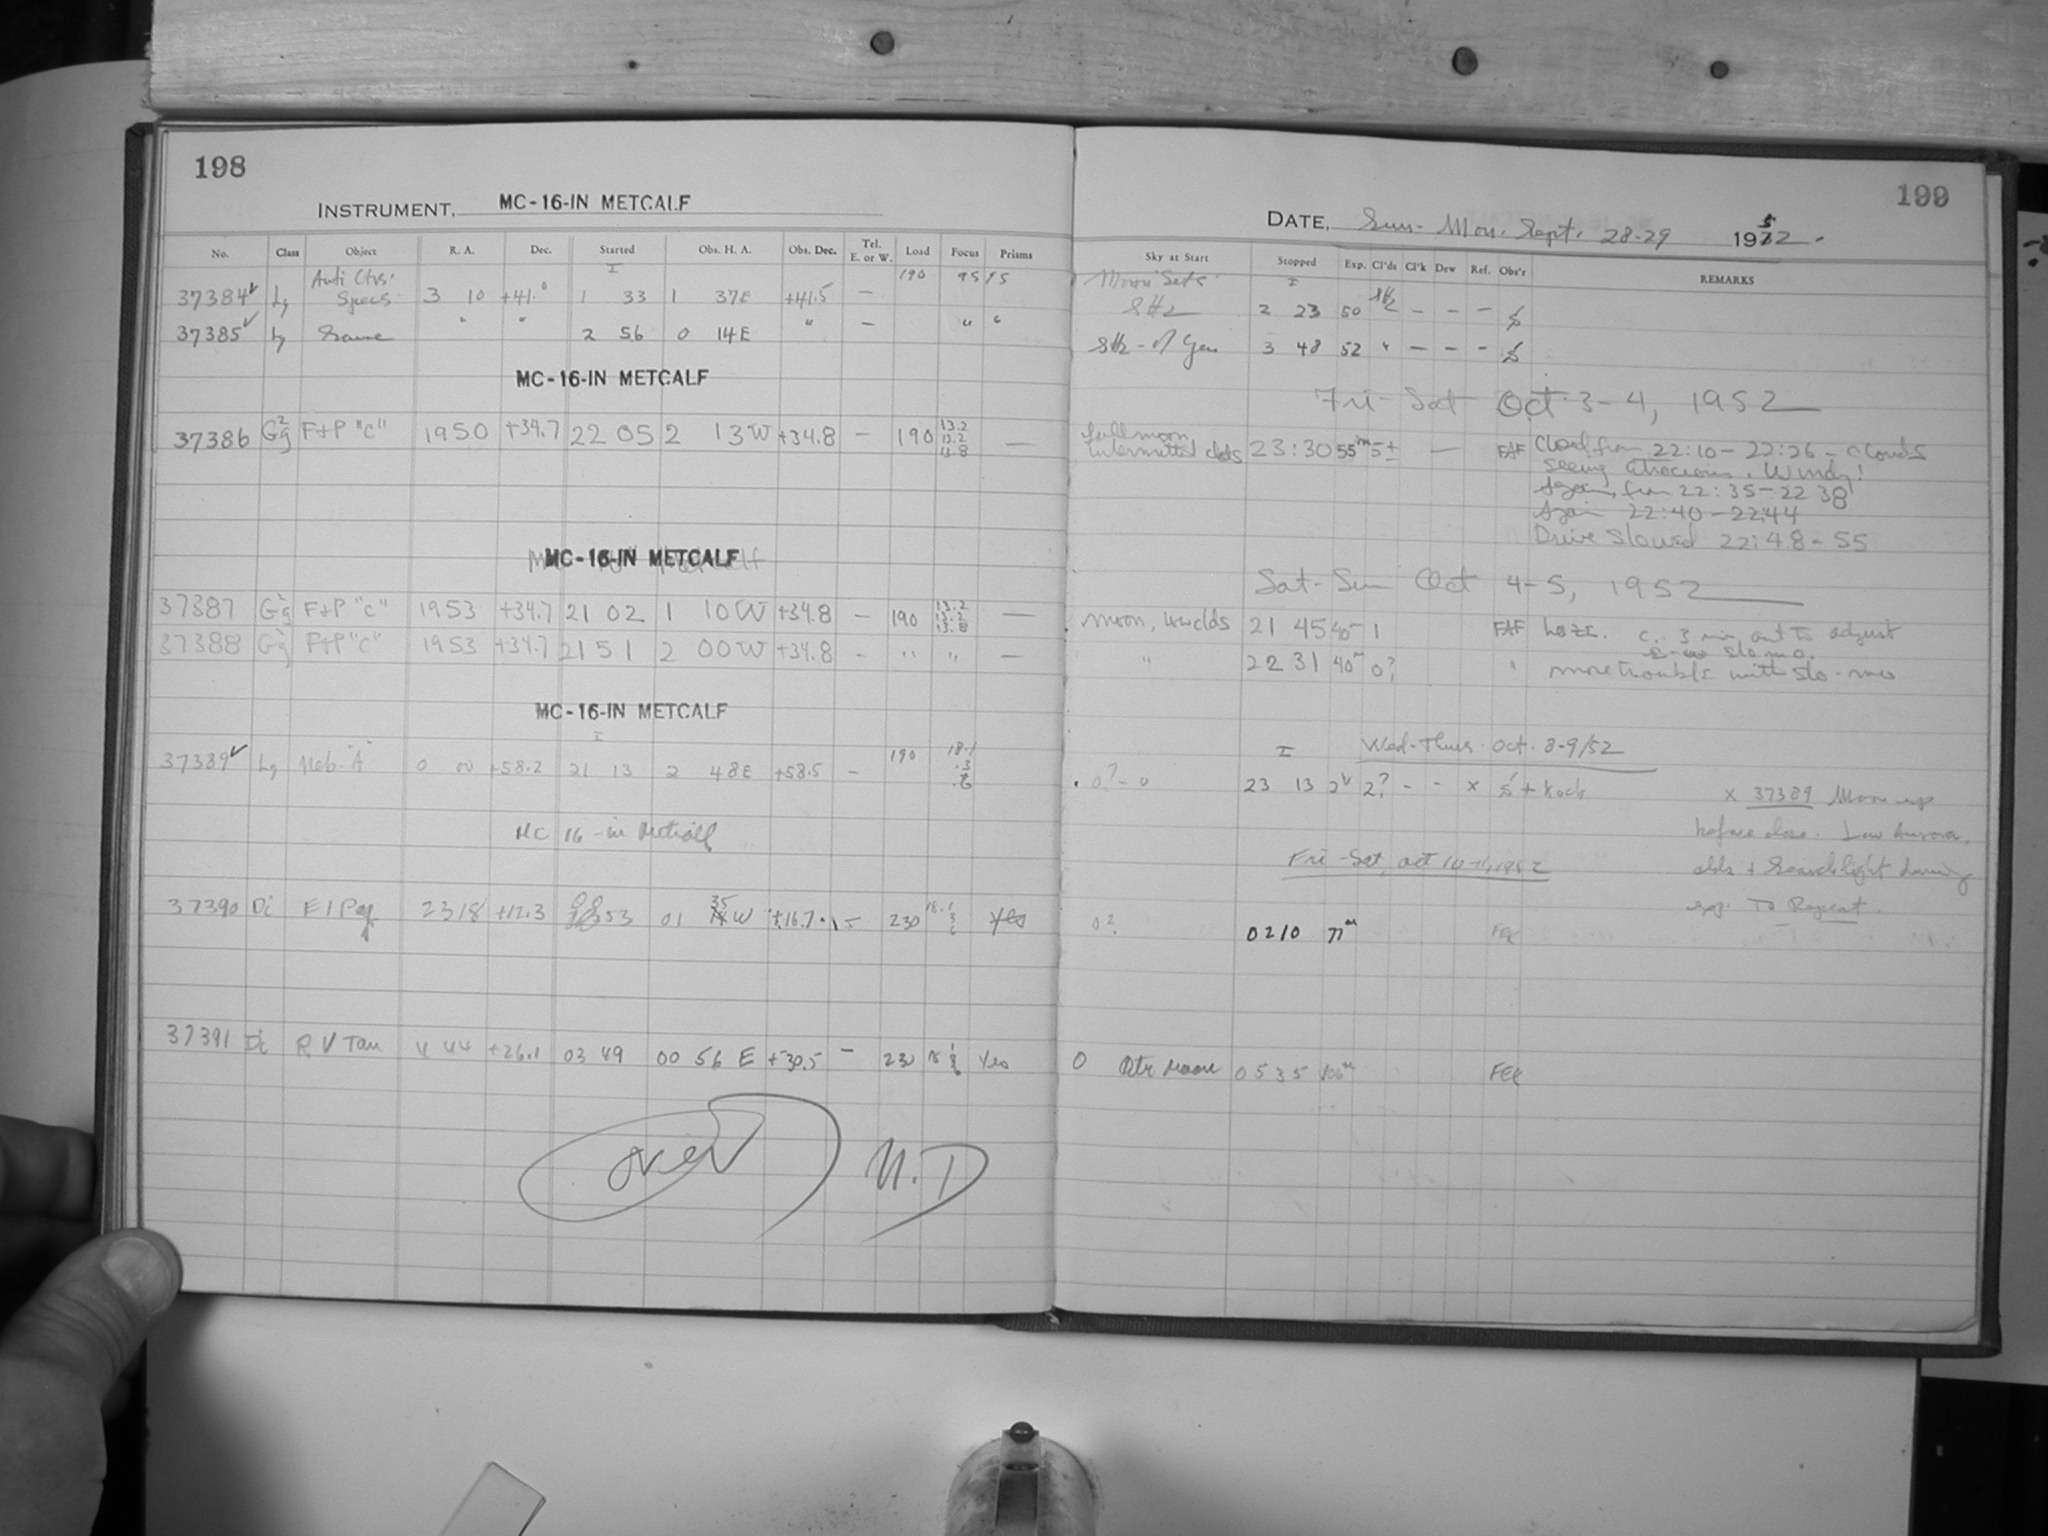 198
INSTRUMENT, MC-16-IN METCALF
No. Class Object R. A. Dec. Started Obs. H. A. Obs. Dec. Tel. E. or W. Load Focus Prisms
37384 3 10 1 33 1 37E +41.5 — 190
37385 Same " " 2 56 0 14E " — " "
MC-16-IN METCALF
37386 F+P "C" 1950 +34.7 22 05 2 13W +34.8 — 190 13.2 13.2 13.8 —
MC-16-IN METCALF
37387 F+P "C" 1953 +34.7 21 02 1 10W +34.8 — 190 13.2 13.2 13.8 —
37388 F+P "C" 1953 +34.7 21 51 2 00W +34.8 - " " —
MC-16-IN METCALF
37389 Neb. "A" 0 00 +58.2 21 13 2 48E +58.5 - 190 18.1 .3 .6
MC 16-in Metcalf
37390 Di 2318 +12.3 53 01 35 W +16.7 - 230 18.1 3 6 Yes
37391 Di RV Tau 4 44 +26.1 03 49 00 56 E +30.5 - 230 Yes
over N.D
199
DATE, Sun-Mon. Sept. 28-29 1952.
Sky at Start Stopped Exp. Cl'ds Cl'k Dew Ref. Obs'r REMARKS
Moon Sets
2 23 50 - - -
3 48 52 " - - -
Fri-Sat Oct 3-4, 1952
full moon intermittent clds 23:30 55m 5± — FAF Cloud from 22:10-22:26 - clouds
seeing atrocious. Windy!
Again, from 22:35-22 38
Again 22:40-2244
Drive Slowed 22:48-55
Sat-Sun Oct 4-5, 1952
moon, 21 45 40- 1 FAF haze. c. 3 min out to adjust
slo mo.
" 22 31 40m 0? " more trouble with slo-mo
Wed-Thurs. Oct. 8-9/52
0?-0 23 13 2? - - x + Koch x 37389 Moon up
before close. Low Aurora,
clds + Searchlight during
exp. To Repeat.
Fri-Sat, Oct 10-11, 1952
0? 0210 77m
0 Qtr moon 0535 106m